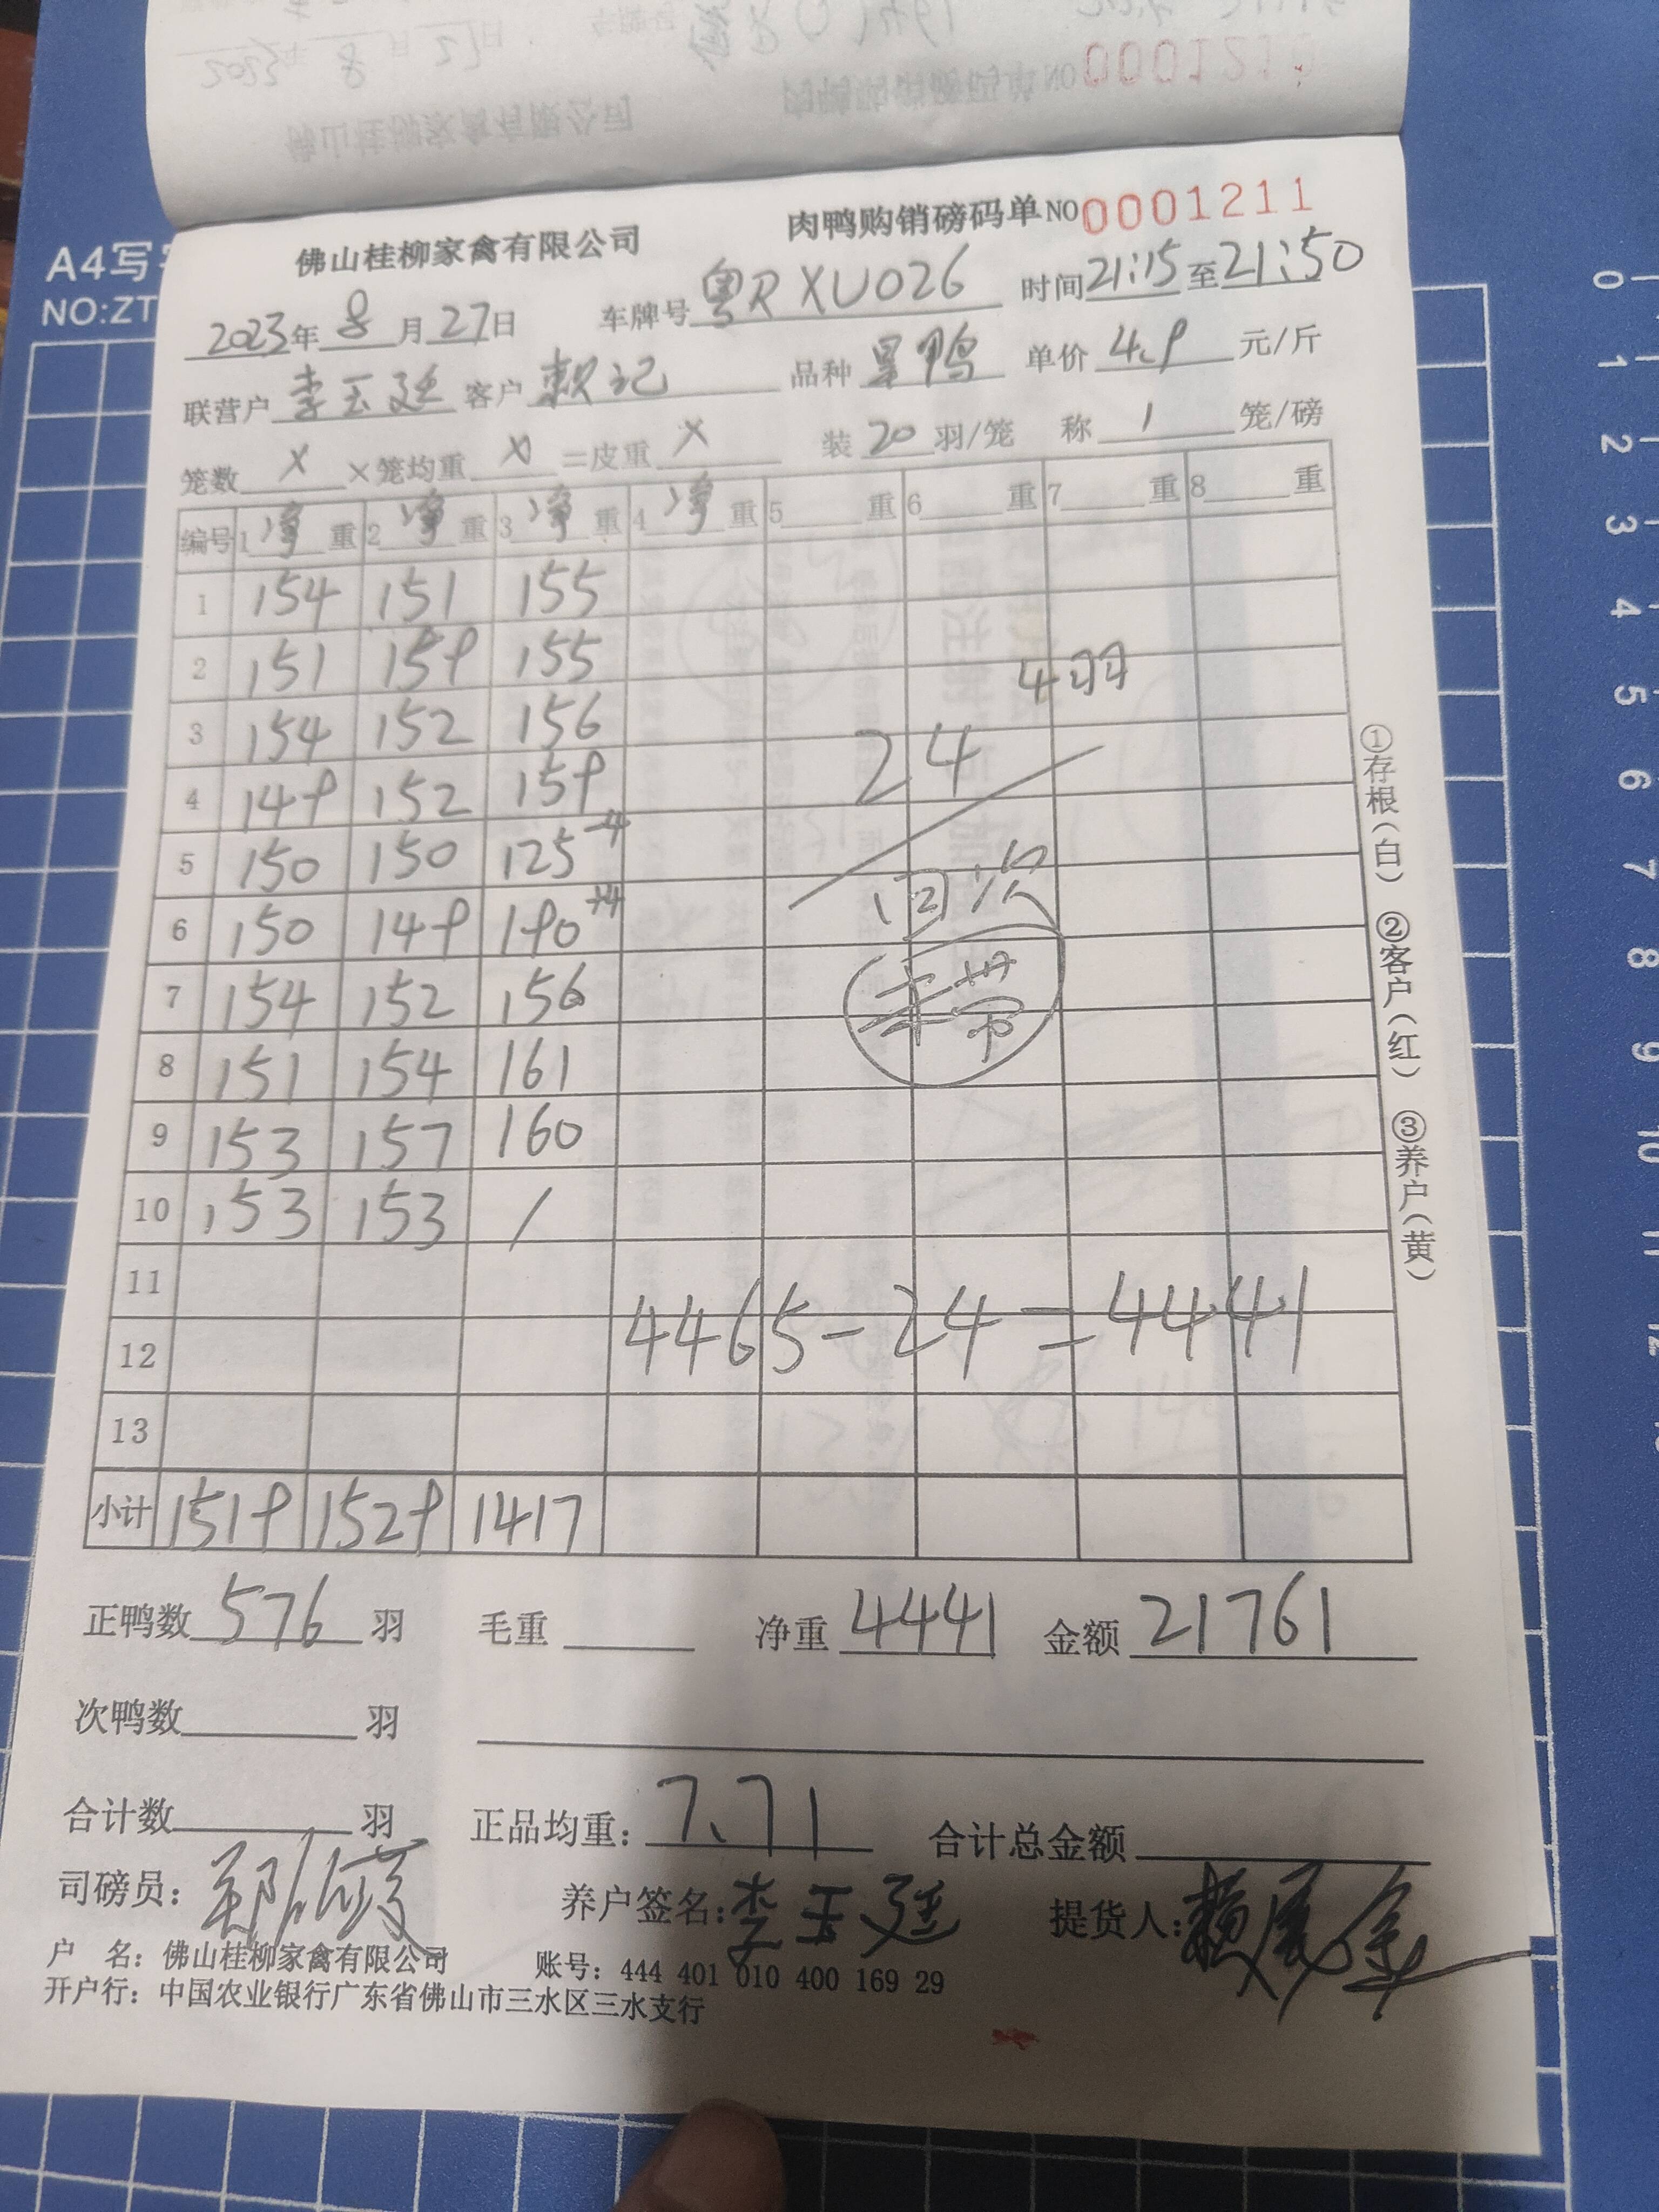 A4写
NO:ZT
0001210
佛山桂柳家禽有限公司 肉鸭购销磅码单 NO 0001211
2023年 8 月 27日 车牌号 粤R XU026 时间 21:15 至 21:50
联营户 李玉廷 客户 赖记 品种 呈鸭 单价 4.9 元/斤
笼数 X ×笼均重 X =皮重 X 装 20 羽/笼 称 1 笼/磅
编号 1 净 重 2 净 重 3 净 重 4 净 重 5 重 6 重 7 重 8 重
1 154 151 155
2 151 159 155
4羽
3 154 152 156
24
4 149 152 159
5 150 150 125 -4
回次
6 150 149 190 +4
7 154 152 156
未带
8 151 154 161
9 153 157 160
10 153 153 /
11
12 4465-24=4441
13
小计 1519 1529 1417
①存根(白) ②客户(红) ③养户(黄)
正鸭数 576 羽 毛重 净重 4441 金额 21761
次鸭数 羽
合计数 羽 正品均重: 7.71 合计总金额
司磅员: 养户签名: 李玉廷 提货人:
户 名: 佛山桂柳家禽有限公司 账号: 444 401 010 400 169 29
开户行: 中国农业银行广东省佛山市三水区三水支行
0
1
2
3
4
5
6
7
8
9
10
11
12